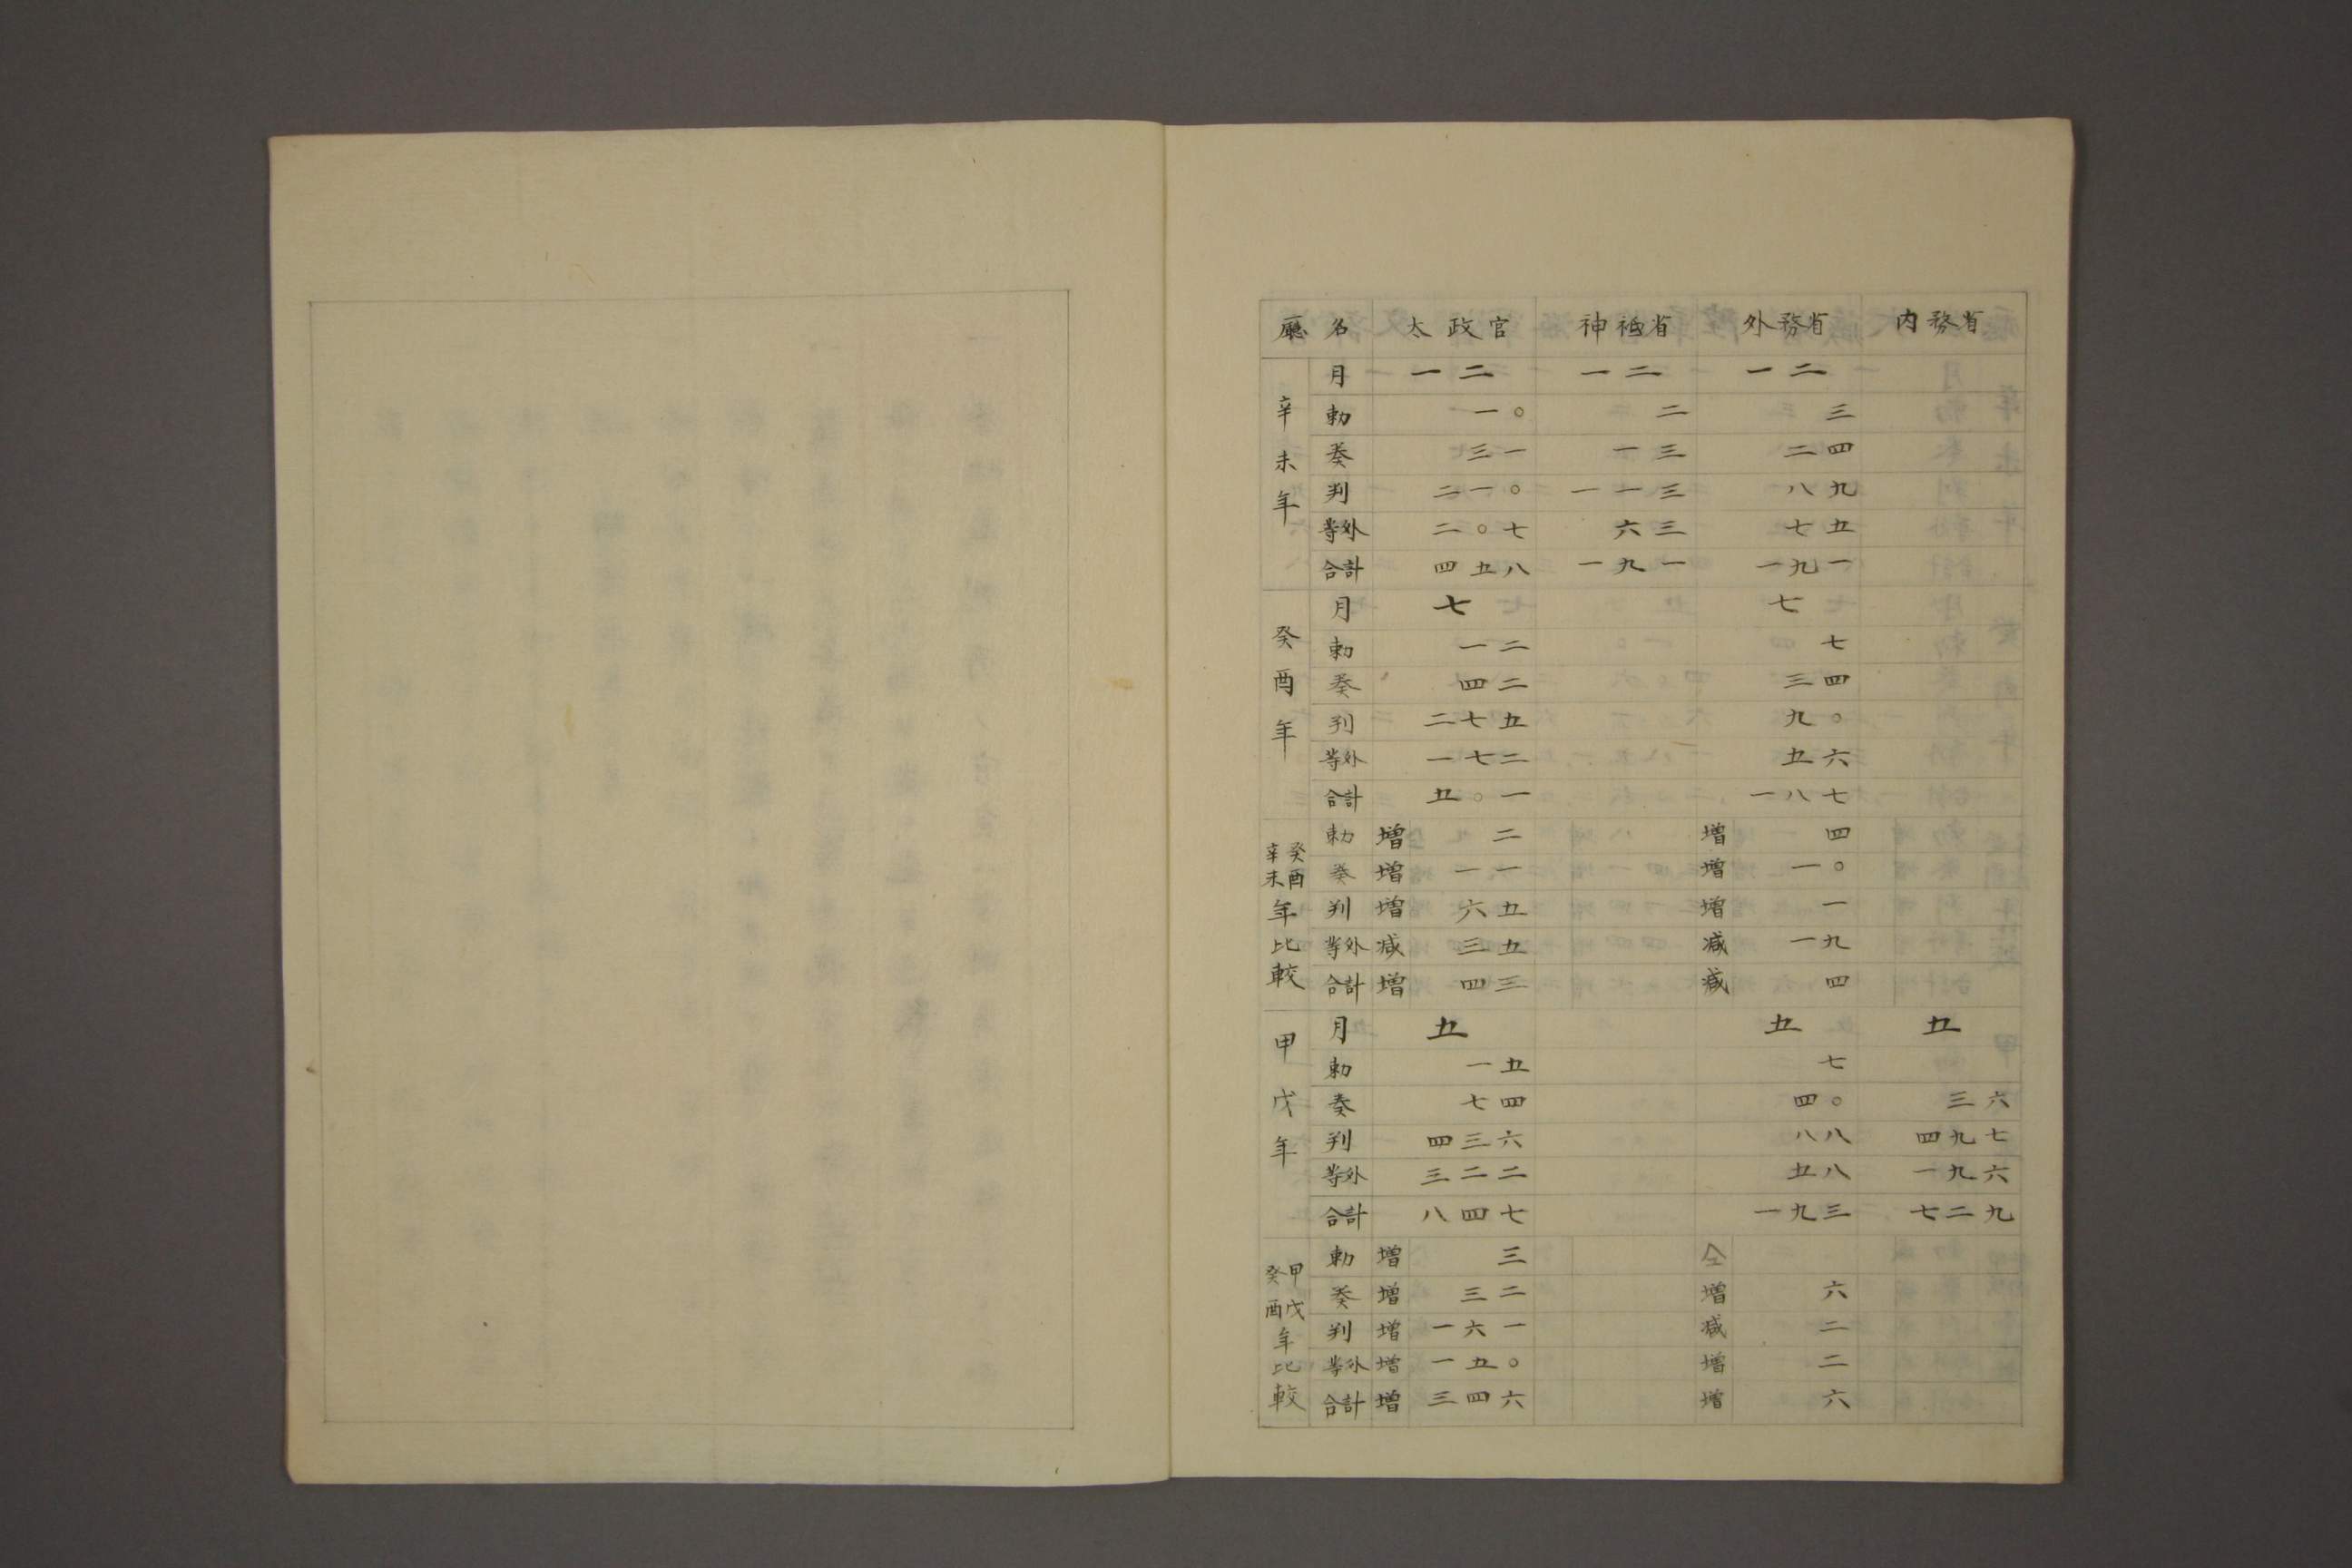 廳名 太政官 神祇省 外務省 内務省
辛未年 月 一二 一二 一二
勅 一〇 二 三
奏 三一 一三 二四
判 二一〇 一一三 八九
等外 二〇七 六三 七五
合計 四五八 一九一 一九一
癸酉年 月 七 七
勅 一二 七
奏 四二 三四
判 二七五 九〇
等外 一七二 五六
合計 五〇一 一八七
癸酉辛未年比較 勅 増 二 増 四
奏 増 一一 増 一〇
判 増 六五 増 一
等外 减 三五 减 一九
合計 増 四三 减 四
甲戌年 月 五 五 五
勅 一五 七
奏 七四 四〇 三六
判 四三六 八八 四九七
等外 三二二 五八 一九六
合計 八四七 一九三 七二九
甲戌癸酉年比較 勅 増 三 仝
奏 増 三二 増 六
判 増 一六一 减 二
等外 増 一五〇 増 二
合計 増 三四六 増 六